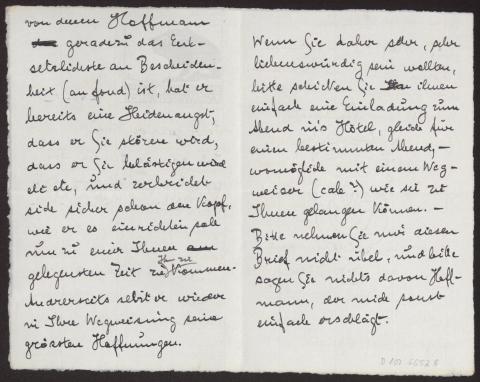 von denen Hoffmann
geradezu das Ent-
setzlichste an Bescheiden-
heit (au fond) ist, hat er
bereits eine Heidenangst,
dass er Sie stören wird,
dass er Sie belästigen wird
etc etc, und zerbricht
sich sicher schon den Kopf,
wie er es einrichten soll
nun zu einer Ihnen
gelegensten Zeit zu Ihnen zu kommen.
Andrerseits setzt er wieder
in Ihre Wegweisung seine
grössten Hoffnungen.
Wenn Sie daher sehr, sehr
liebenswürdig sein wollten,
bitte schicken Sie ihnen
einfach eine Einladung zum
Abend in's Hôtel, gleich für
einen bestimmten Abend, –
womöglich mit einem Weg-
weiser (calè?) wie sie zu
Ihnen gelangen können. –
Bitte nehmen Sie mir diesen
Brief nicht übel, und bitte
sagen Sie nichts davon Hoff-
mann, der mich sonst
einfach erschlägt.